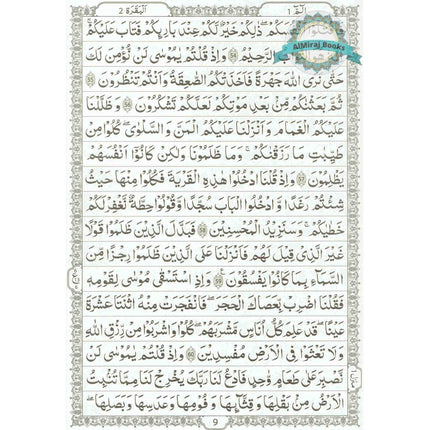 اَلْبَقَرَة ٢
الٓمّٓ ١
AlMiraj Books
ذٰلِكُمْ خَيْرٌ لَّكُمْ عِنْدَ بَارِئِكُمْ فَتَابَ عَلَيْكُمْ
الرَّحِيْمُ ﴿٥٤﴾ وَاِذْ قُلْتُمْ يٰمُوْسٰى لَنْ نُّؤْمِنَ لَكَ
حَتّٰى نَرَى اللّٰهَ جَهْرَةً فَاَخَذَتْكُمُ الصّٰعِقَةُ وَاَنْتُمْ تَنْظُرُوْنَ ﴿٥٥﴾
ثُمَّ بَعَثْنٰكُمْ مِّنْۢ بَعْدِ مَوْتِكُمْ لَعَلَّكُمْ تَشْكُرُوْنَ ﴿٥٦﴾ وَظَلَّلْنَا
عَلَيْكُمُ الْغَمَامَ وَاَنْزَلْنَا عَلَيْكُمُ الْمَنَّ وَالسَّلْوٰى ؕ كُلُوْا مِنْ
طَيِّبٰتِ مَا رَزَقْنٰكُمْ ؕ وَمَا ظَلَمُوْنَا وَلٰكِنْ كَانُوْۤا اَنْفُسَهُمْ
يَظْلِمُوْنَ ﴿٥٧﴾ وَاِذْ قُلْنَا ادْخُلُوْا هٰذِهِ الْقَرْيَةَ فَكُلُوْا مِنْهَا حَيْثُ
شِئْتُمْ رَغَدًا وَّادْخُلُوا الْبَابَ سُجَّدًا وَّقُوْلُوْا حِطَّةٌ نَّغْفِرْ لَكُمْ
خَطٰيٰكُمْ ؕ وَسَنَزِيْدُ الْمُحْسِنِيْنَ ﴿٥٨﴾ فَبَدَّلَ الَّذِيْنَ ظَلَمُوْا قَوْلًا
غَيْرَ الَّذِيْ قِيْلَ لَهُمْ فَاَنْزَلْنَا عَلَى الَّذِيْنَ ظَلَمُوْا رِجْزًا مِّنَ
السَّمَآءِ بِمَا كَانُوْا يَفْسُقُوْنَ ﴿٥٩﴾ وَاِذِ اسْتَسْقٰى مُوْسٰى لِقَوْمِهٖ
فَقُلْنَا اضْرِبْ بِّعَصَاكَ الْحَجَرَ ؕ فَانْفَجَرَتْ مِنْهُ اثْنَتَا عَشْرَةَ
عَيْنًا ؕ قَدْ عَلِمَ كُلُّ اُنَاسٍ مَّشْرَبَهُمْ ؕ كُلُوْا وَاشْرَبُوْا مِنْ رِّزْقِ اللّٰهِ
وَلَا تَعْثَوْا فِى الْاَرْضِ مُفْسِدِيْنَ ﴿٦٠﴾ وَاِذْ قُلْتُمْ يٰمُوْسٰى لَنْ
نَّصْبِرَ عَلٰى طَعَامٍ وَّاحِدٍ فَادْعُ لَنَا رَبَّكَ يُخْرِجْ لَنَا مِمَّا تُنْۢبِتُ
الْاَرْضُ مِنْۢ بَقْلِهَا وَقِثَّآئِهَا وَفُوْمِهَا وَعَدَسِهَا وَبَصَلِهَا ؕ
9